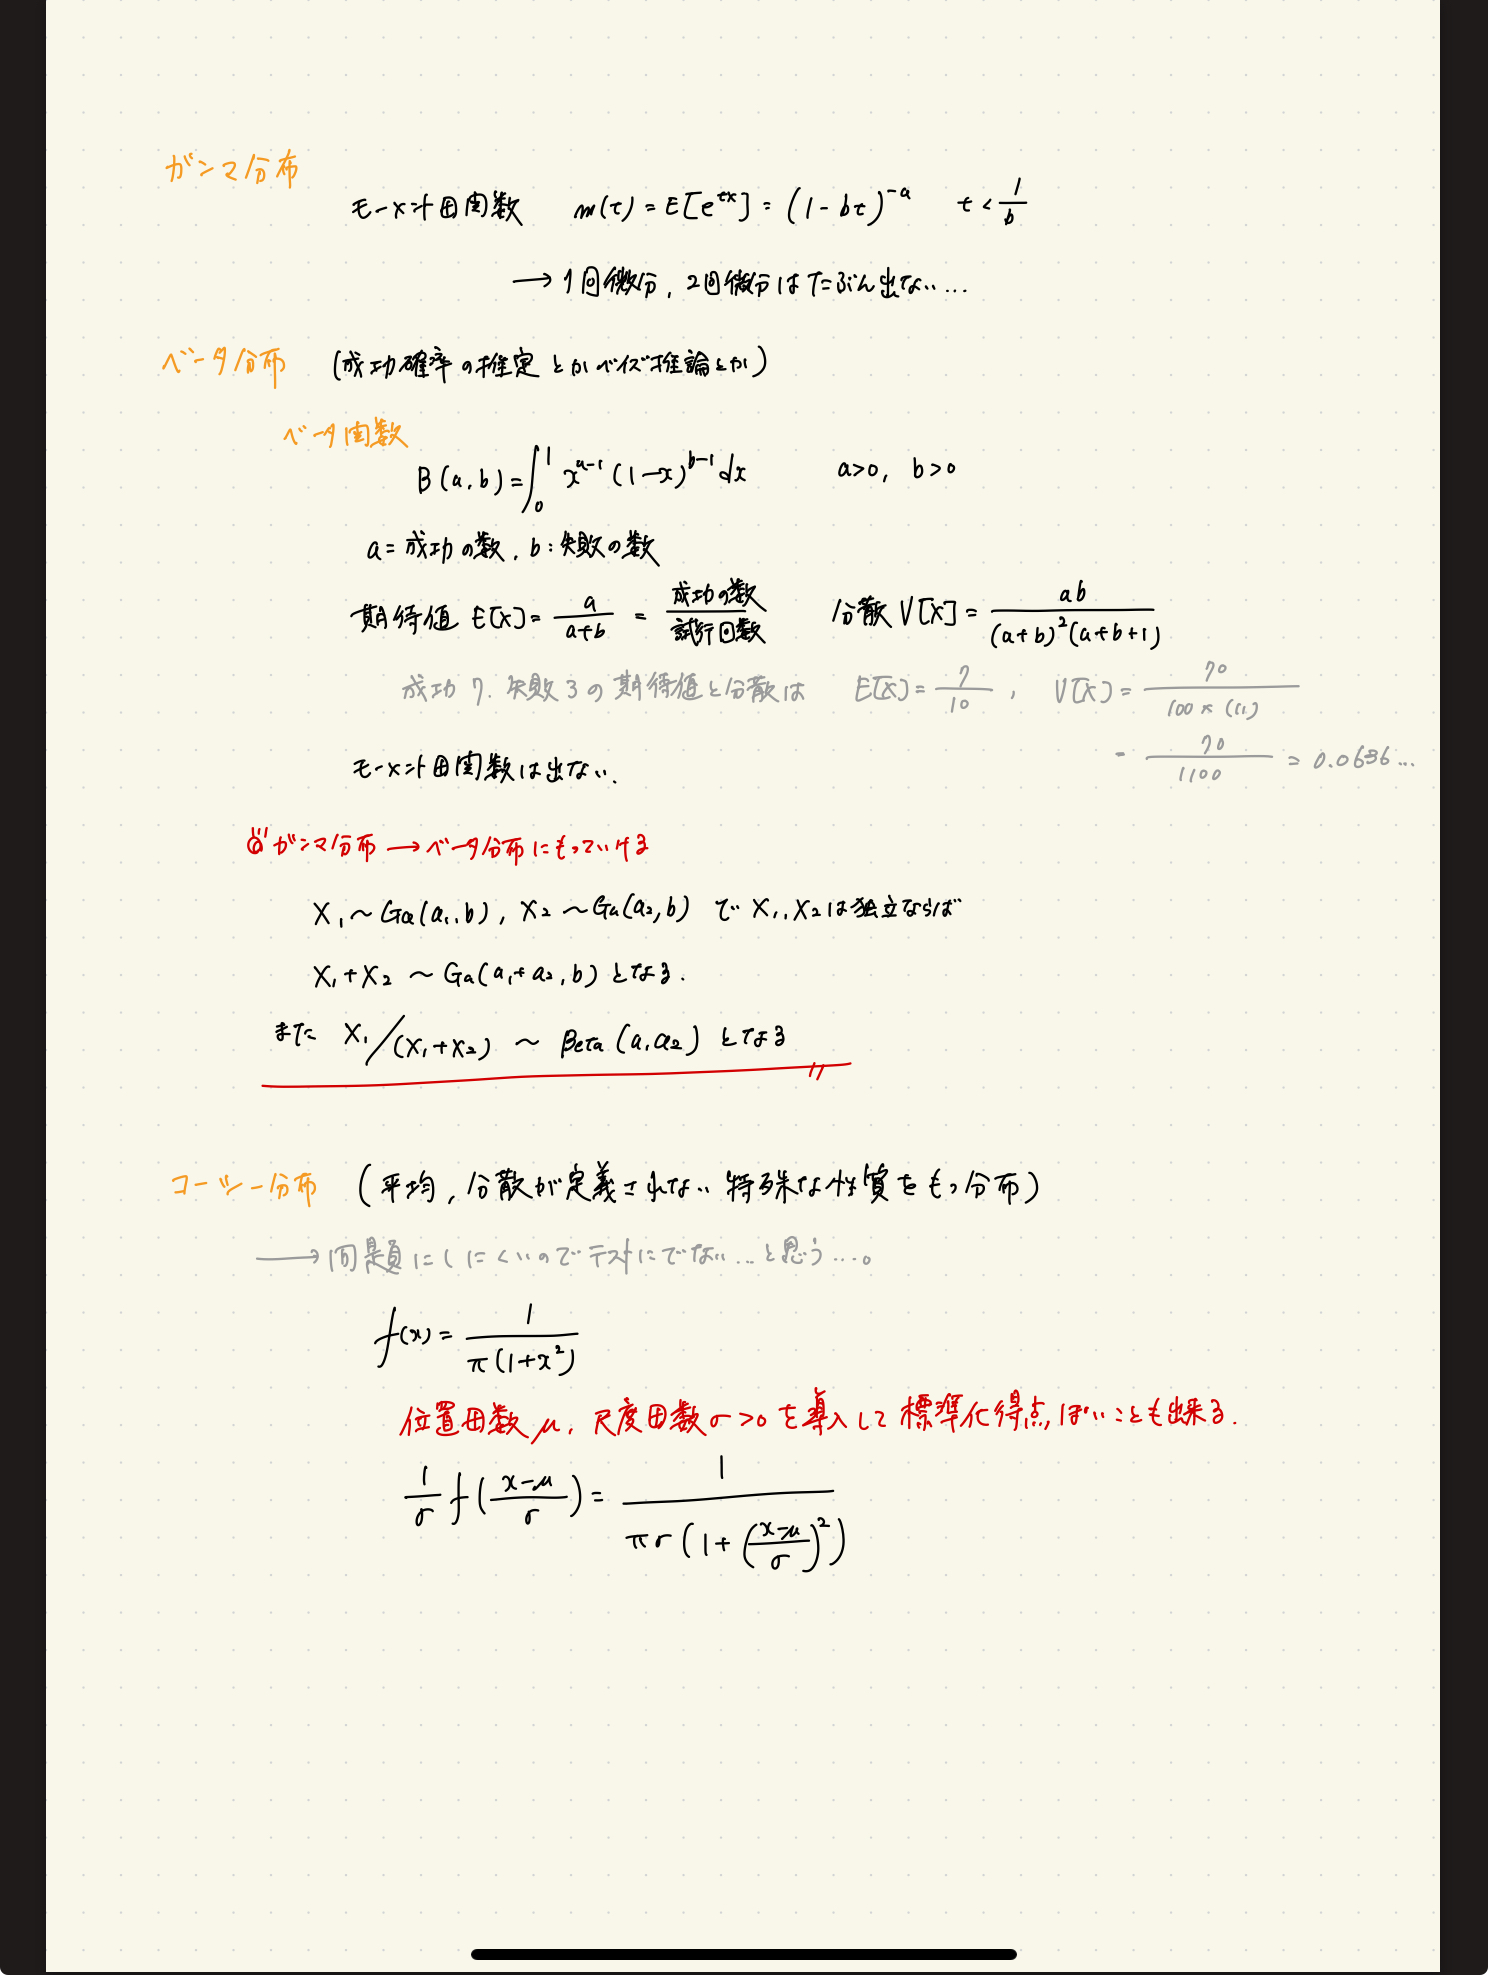 ガンマ分布
モーメント母関数 m(t) = E[e^{tx}] = (1 - bt)^{-a} t < 1/b
→ 1回微分, 2回微分はたぶん出ない...
ベータ分布 (成功確率の推定とかベイズ推論とか)
ベータ関数
B(a, b) = ∫_0^1 x^{a-1} (1-x)^{b-1} dx a>0, b>0
a = 成功の数, b : 失敗の数
期待値 E[X] = a/(a+b) = 成功の数/試行回数 分散 V[X] = ab/((a+b)^2(a+b+1))
成功 7. 失敗 3 の期待値と分散は E[X] = 7/10 , V[X] = 70/(100 × (11))
= 70/1100 = 0.0636...
モーメント母関数は出ない.
ガンマ分布 → ベータ分布にもっていける
X₁ ~ Ga(a₁, b), X₂ ~ Ga(a₂, b) で X₁, X₂ は独立ならば
X₁ + X₂ ~ Ga(a₁ + a₂, b) となる.
また X₁/(X₁+X₂) ~ Beta (a₁ a₂) となる
コーシー分布 (平均, 分散が定義されない特殊な性質をもつ分布)
→ 問題にしにくいのでテストにでない...と思う....。
f(x) = 1/(π(1+x²))
位置母数 μ, 尺度母数 σ>0 を導入して標準化得点っぽいことも出来る.
1/σ f((x-μ)/σ) = 1/(πσ(1+((x-μ)/σ)²))